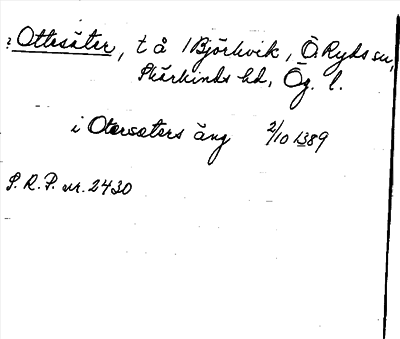 ? Ottesäter, t å /Björkvik, Ö. Ryds sn,
Skärkinds hd, Ög. l.
i Oterssæters äng 2/10 1389
S. R. P. nr. 2430